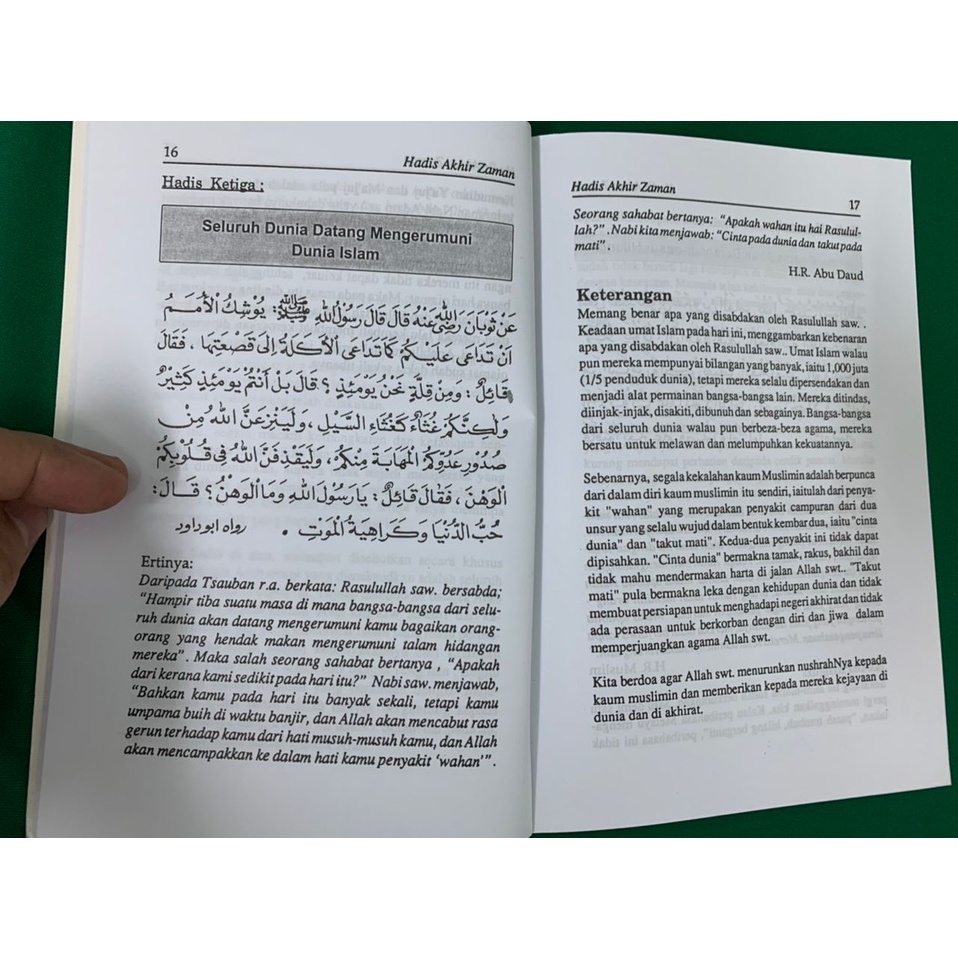 16
Hadis Akhir Zaman
Hadis Ketiga :
Seluruh Dunia Datang Mengerumuni
Dunia Islam
عَنْ ثَوْبَانَ رَضِيَ اللهُ عَنْهُ قَالَ قَالَ رَسُوْلُ اللهِ ﷺ: يُوْشِكُ الْأُمَمُ
اَنْ تَدَاعَى عَلَيْكُمْ كَمَا تَدَاعَى الْأَكَلَةُ إِلَى قَصْعَتِهَا ، فَقَالَ
قَائِلٌ : وَمِنْ قِلَّةٍ نَحْنُ يَوْمَئِذٍ ؟ قَالَ بَلْ أَنْتُمْ يَوْمَئِذٍ كَثِيْرٌ
وَلٰكِنَّكُمْ غُثَاءٌ كَغُثَاءِ السَّيْلِ ، وَلَيَنْزِعَنَّ اللهُ مِنْ
صُدُوْرِ عَدُوِّكُمُ الْمَهَابَةَ مِنْكُمْ ، وَلَيَقْذِفَنَّ اللهُ فِي قُلُوْبِكُمُ
الْوَهْنَ ، فَقَالَ قَائِلٌ : يَا رَسُوْلَ اللهِ وَمَا الْوَهْنُ ؟ قَالَ :
حُبُّ الدُّنْيَا وَكَرَاهِيَةُ الْمَوْتِ . رواه ابو داود
Ertinya:
Daripada Tsauban r.a. berkata: Rasulullah saw. bersabda;
“Hampir tiba suatu masa di mana bangsa-bangsa dari selu-
ruh dunia akan datang mengerumuni kamu bagaikan orang-
orang yang hendak makan mengerumuni talam hidangan
mereka”. Maka salah seorang sahabat bertanya , “Apakah
dari kerana kami sedikit pada hari itu?” Nabi saw. menjawab,
“Bahkan kamu pada hari itu banyak sekali, tetapi kamu
umpama buih di waktu banjir, dan Allah akan mencabut rasa
gerun terhadap kamu dari hati musuh-musuh kamu, dan Allah
akan mencampakkan ke dalam hati kamu penyakit ‘wahan’”.
Hadis Akhir Zaman
17
Seorang sahabat bertanya: “Apakah wahan itu hai Rasulul-
lah?”. Nabi kita menjawab: “Cinta pada dunia dan takut pada
mati”.
H.R. Abu Daud
Keterangan
Memang benar apa yang disabdakan oleh Rasulullah saw. .
Keadaan umat Islam pada hari ini, menggambarkan kebenaran
apa yang disabdakan oleh Rasulullah saw.. Umat Islam walau
pun mereka mempunyai bilangan yang banyak, iaitu 1,000 juta
(1/5 penduduk dunia), tetapi mereka selalu dipersendakan dan
menjadi alat permainan bangsa-bangsa lain. Mereka ditindas,
diinjak-injak, disakiti, dibunuh dan sebagainya. Bangsa-bangsa
dari seluruh dunia walau pun berbeza-beza agama, mereka
bersatu untuk melawan dan melumpuhkan kekuatannya.
Sebenarnya, segala kekalahan kaum Muslimin adalah berpunca
dari dalam diri kaum muslimin itu sendiri, iaitulah dari penya-
kit "wahan" yang merupakan penyakit campuran dari dua
unsur yang selalu wujud dalam bentuk kembar dua, iaitu "cinta
dunia" dan "takut mati". Kedua-dua penyakit ini tidak dapat
dipisahkan. "Cinta dunia" bermakna tamak, rakus, bakhil dan
tidak mahu mendermakan harta di jalan Allah swt.. "Takut
mati" pula bermakna leka dengan kehidupan dunia dan tidak
membuat persiapan untuk menghadapi negeri akhirat dan tidak
ada perasaan untuk berkorban dengan diri dan jiwa dalam
memperjuangkan agama Allah swt.
Kita berdoa agar Allah swt. menurunkan nushrahNya kepada
kaum muslimin dan memberikan kepada mereka kejayaan di
dunia dan di akhirat.